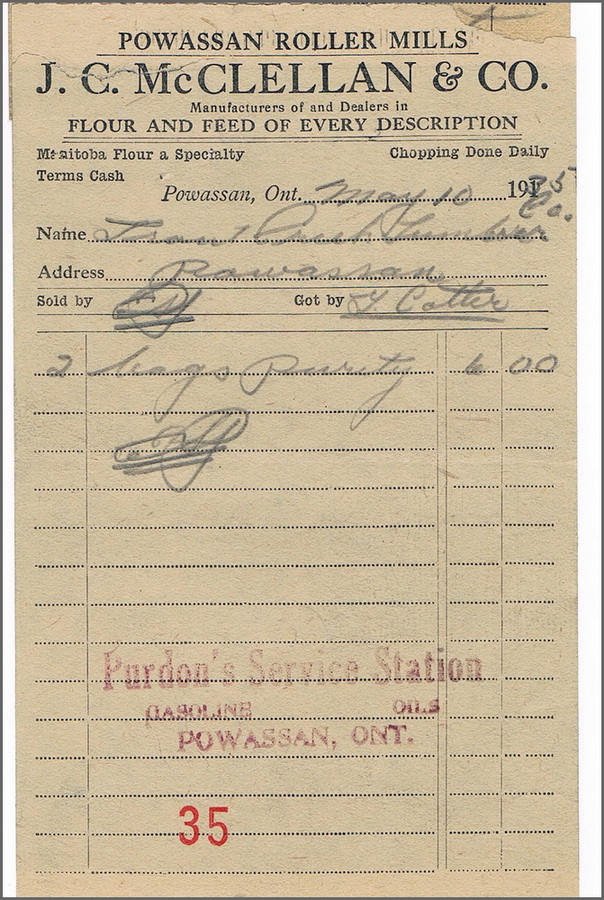 POWASSAN ROLLER MILLS
J. C. McCLELLAN & CO.
Manufacturers of and Dealers in
FLOUR AND FEED OF EVERY DESCRIPTION
Manitoba Flour a Specialty Chopping Done Daily
Terms Cash
Powassan, Ont. May 10 1935
Name Trout Creek Lumber Co.
Address Powassan
Sold by Got by T. Cotter
2 bags Purity 6 00
Purdon's Service Station
GASOLINE OILS
POWASSAN, ONT.
35